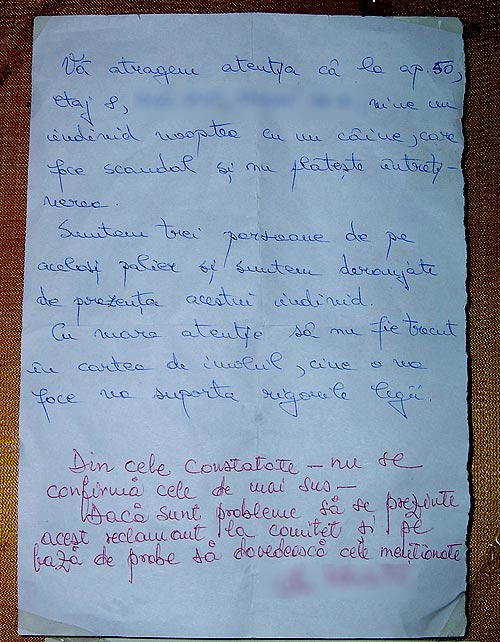 Vă atragem atenția că la ap. 50,
etaj 8, vine un
individ noaptea cu un câine, care
face scandal și nu plătește întreți-
nerea.
Suntem trei persoane de pe
același palier și suntem deranjate
de prezența acestui individ.
Cu mare atenție să nu fie trecut
în cartea de imobil, cine o va
face va suporta rigorile legii.
Din cele constatate – nu se
confirmă cele de mai sus –
Dacă sunt probleme să se prezinte
acest reclamant la comitet și pe
bază de probe să dovedească cele menționate